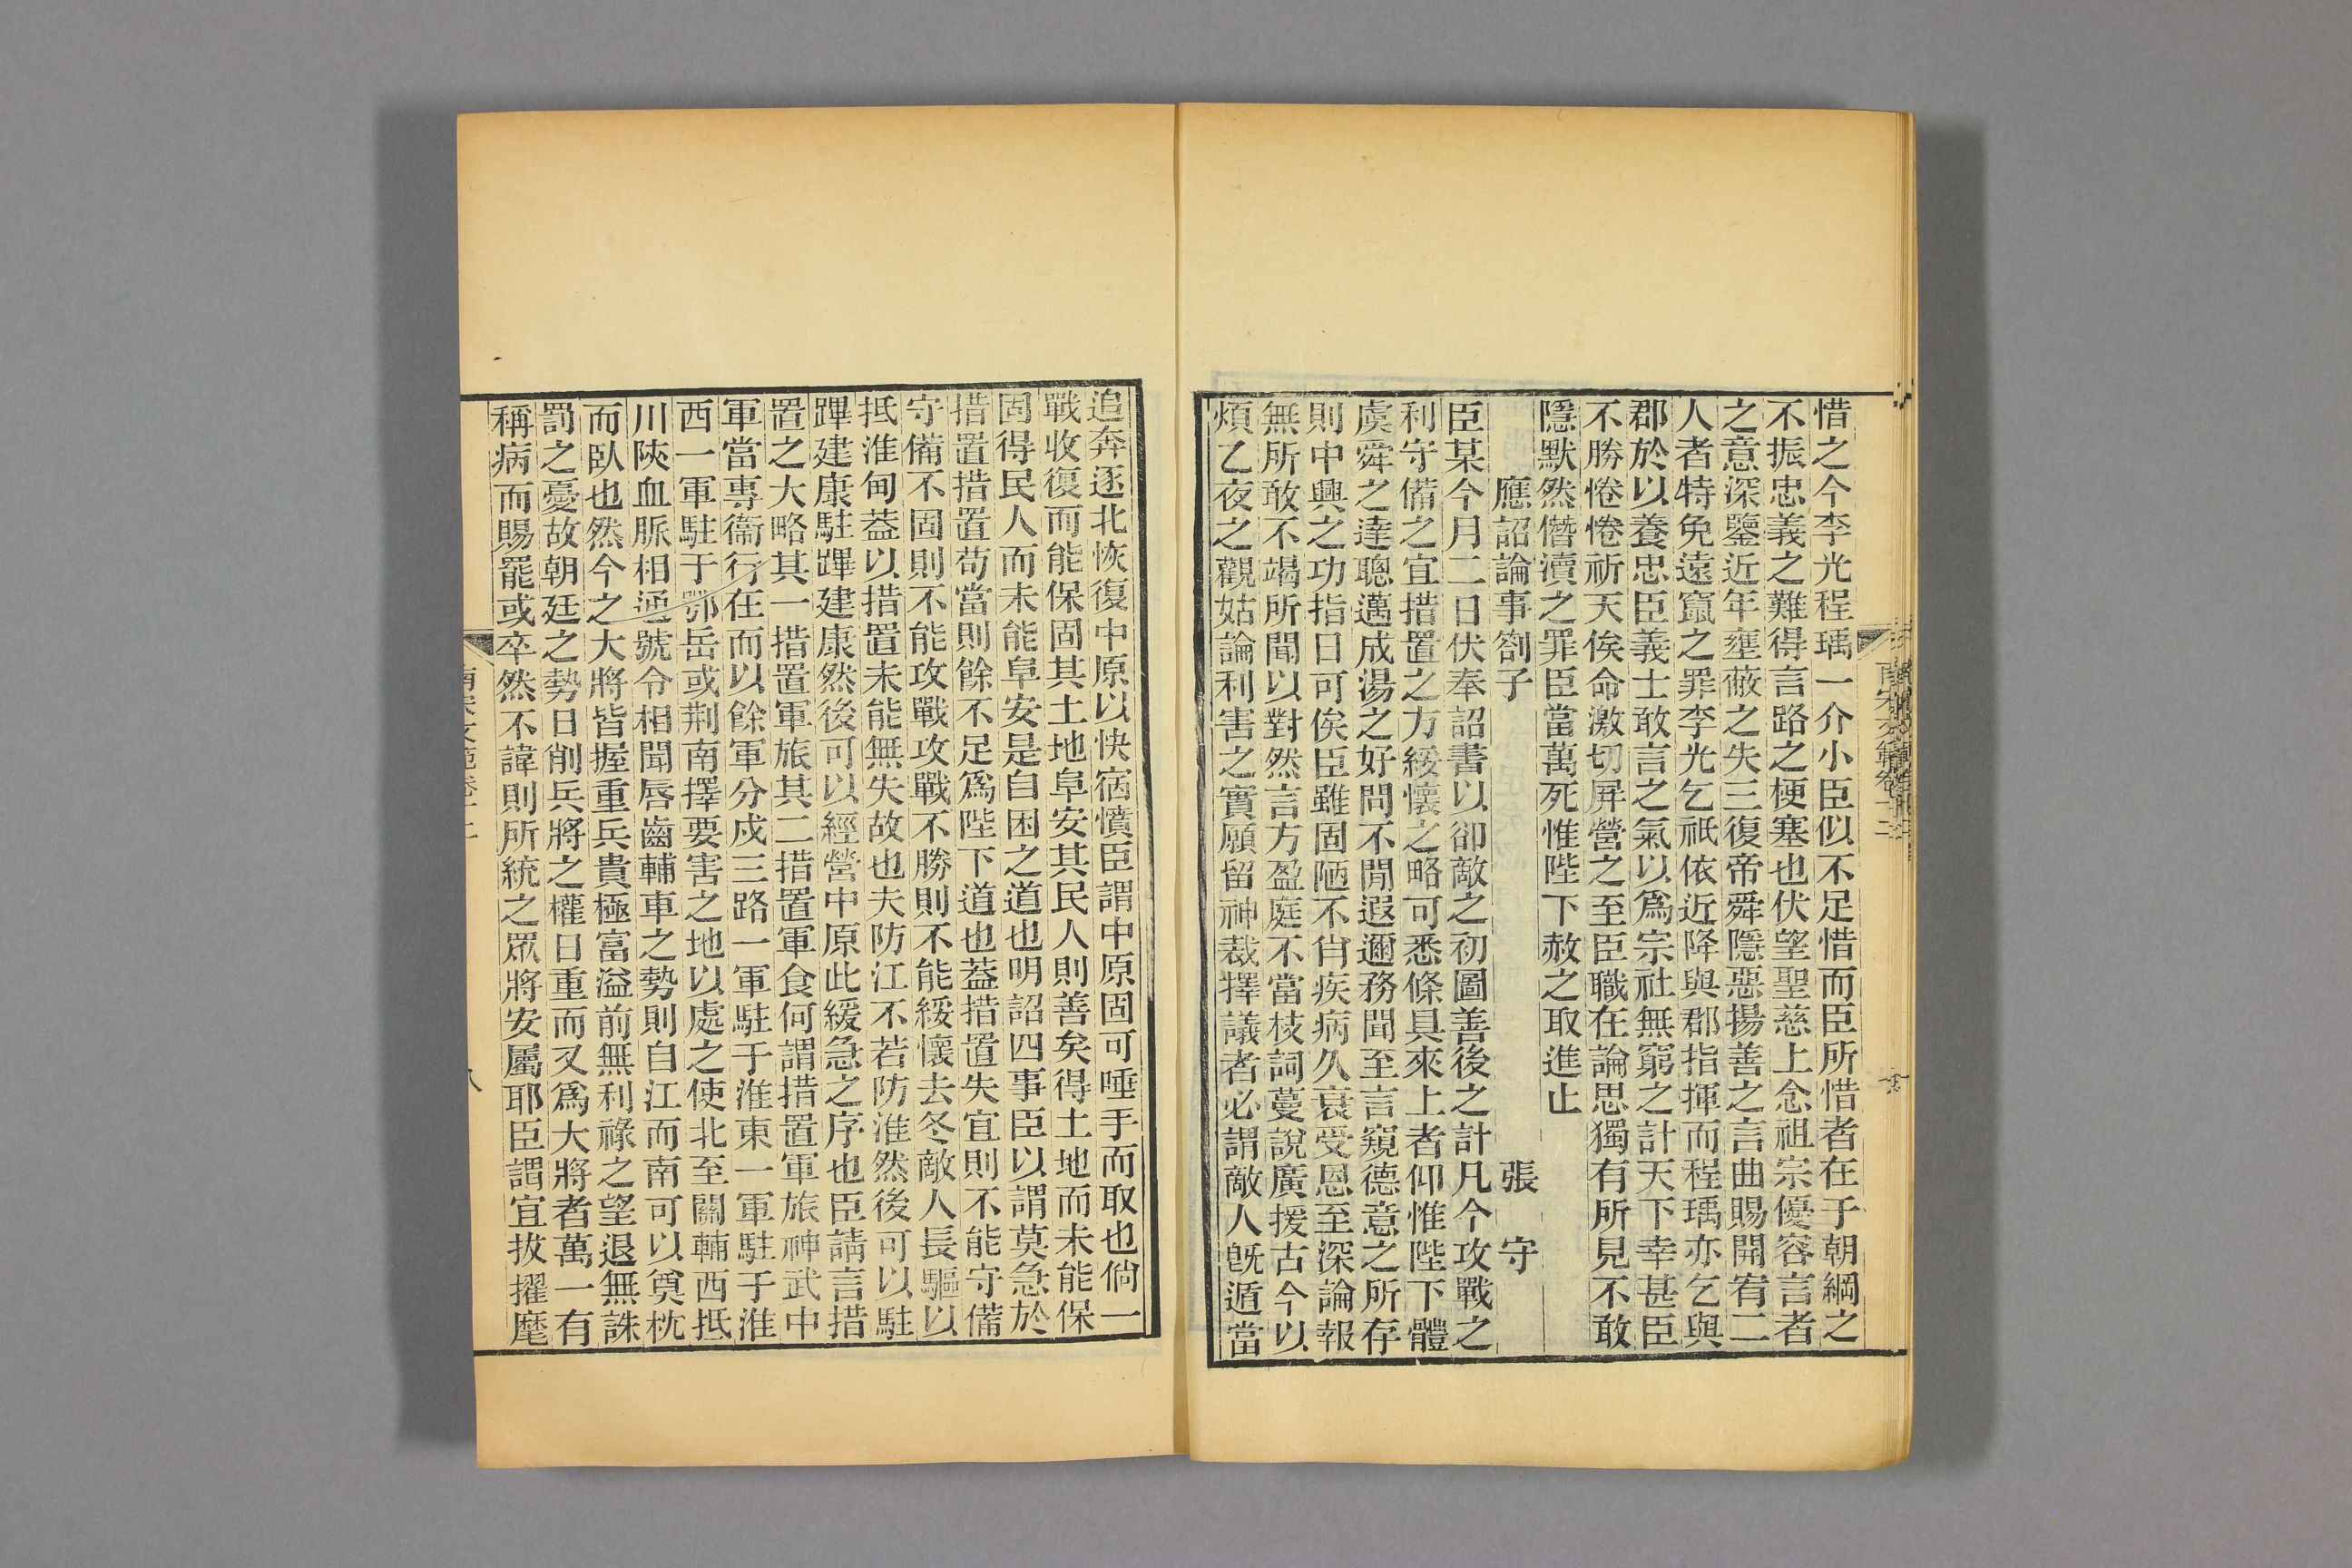 惜之今李光程瑀一介小臣似不足惜而臣所惜者在于朝綱之
不振忠義之難得言路之梗塞也伏望聖慈上念祖宗優容言者
之意深鑒近年壅蔽之失三復帝舜隱惡揚善之言曲賜開宥二
人者特免遠竄之罪李光乞祇依近降與郡指揮而程瑀亦乞與
郡於以養忠臣義士敢言之氣以爲宗社無窮之計天下幸甚臣
不勝惓惓祈天俟命激切屏營之至臣職在論思獨有所見不敢
隱默然僭瀆之罪臣當萬死惟陛下赦之取進止
應詔論事劄子　張　守
臣某今月二日伏奉詔書以卻敵之初圖善後之計凡今攻戰之
利守備之宜措置之方綏懷之略可悉條具來上者仰惟陛下體
虞舜之達聰邁成湯之好問不閒遐邇務聞至言窺德意之所存
則中興之功指日可俟臣雖固陋不肖疾病久衰受恩至深論報
無所敢不竭所聞以對然言方盈庭不當枝詞蔓說廣援古今以
煩乙夜之觀姑論利害之實願留神裁擇議者必謂敵人旣遁當
追奔逐北恢復中原以快宿憤臣謂中原固可唾手而取也倘一
戰收復而能保固其土地阜安其民人則善矣得土地而未能保
固得民人而未能阜安是自困之道也明詔四事臣以謂莫急於
措置措置苟當則餘不足爲陛下道也葢措置失宜則不能守備
守備不固則不能攻戰攻戰不勝則不能綏懷去冬敵人長驅以
抵淮甸葢以措置未能無失故也夫防江不若防淮然後可以駐
蹕建康駐蹕建康然後可以經營中原此緩急之序也臣請言措
置之大略其一措置軍旅其二措置軍食何謂措置軍旅神武中
軍當專衞行在而以餘軍分戍三路一軍駐于淮東一軍駐于淮
西一軍駐于鄂岳或荆南擇要害之地以處之使北至關輔西抵
川陝血脈相通號令相聞脣齒輔車之勢則自江而南可以奠枕
而臥也然今之大將皆握重兵貴極富溢前無利祿之望退無誅
罰之憂故朝廷之勢日削兵將之權日重而又爲大將者萬一有
稱病而賜罷或卒然不諱則所統之眾將安屬耶臣謂宜拔擢麾
南宋文範卷十二
八